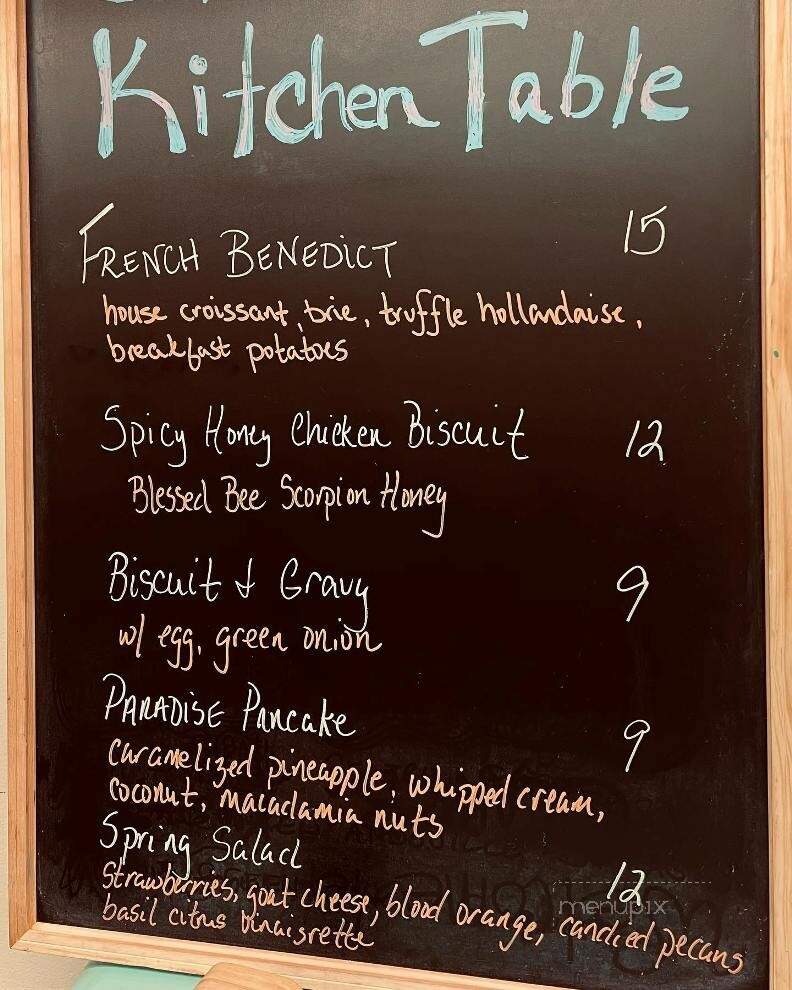 Kitchen Table
FRENCH BENEDICT 15
house croissant, brie, truffle hollandaise,
breakfast potatoes
Spicy Honey Chicken Biscuit 12
Blessed Bee Scorpion Honey
Biscuit & Gravy 9
w/ egg, green onion
PARADISE Pancake 9
caramelized pineapple, whipped cream,
coconut, macadamia nuts
Spring Salad 12
strawberries, goat cheese, blood orange, candied pecans
basil citrus vinaisrette
menupix